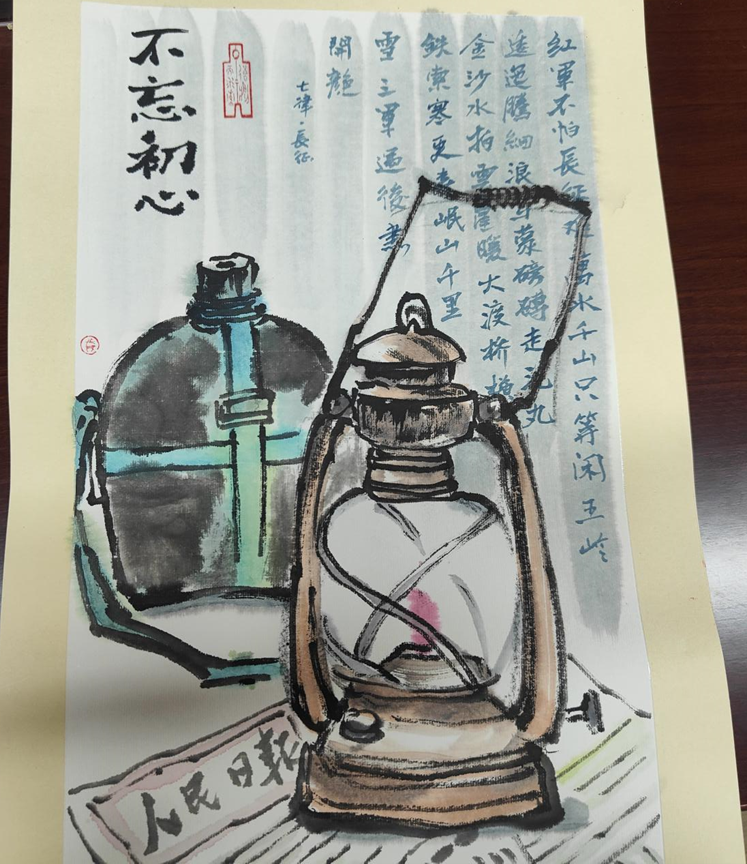 紅軍不怕長征難萬水千山只等闲五岭
逶迤騰細浪烏蒙磅礴走泥丸
金沙水拍雲崖暖大渡桥横
鉄索寒更喜岷山千里
雪三軍過後盡
開顏
七律·長征
不忘初心
人民日報